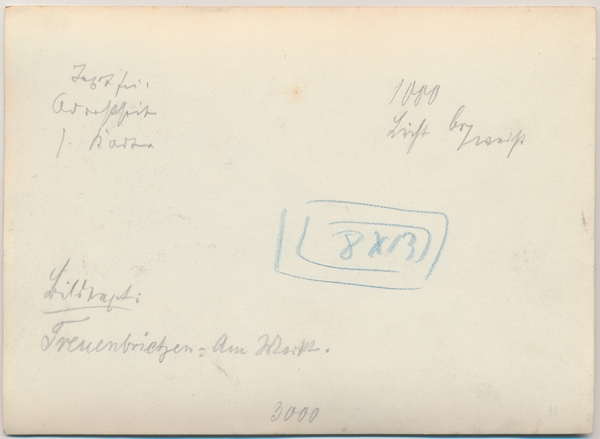 Text frei:
Adreßseite
f. Karten
1000
Licht br/weiß
8 x 13
Bildtext:
Treuenbrietzen = Am Markt.
3000